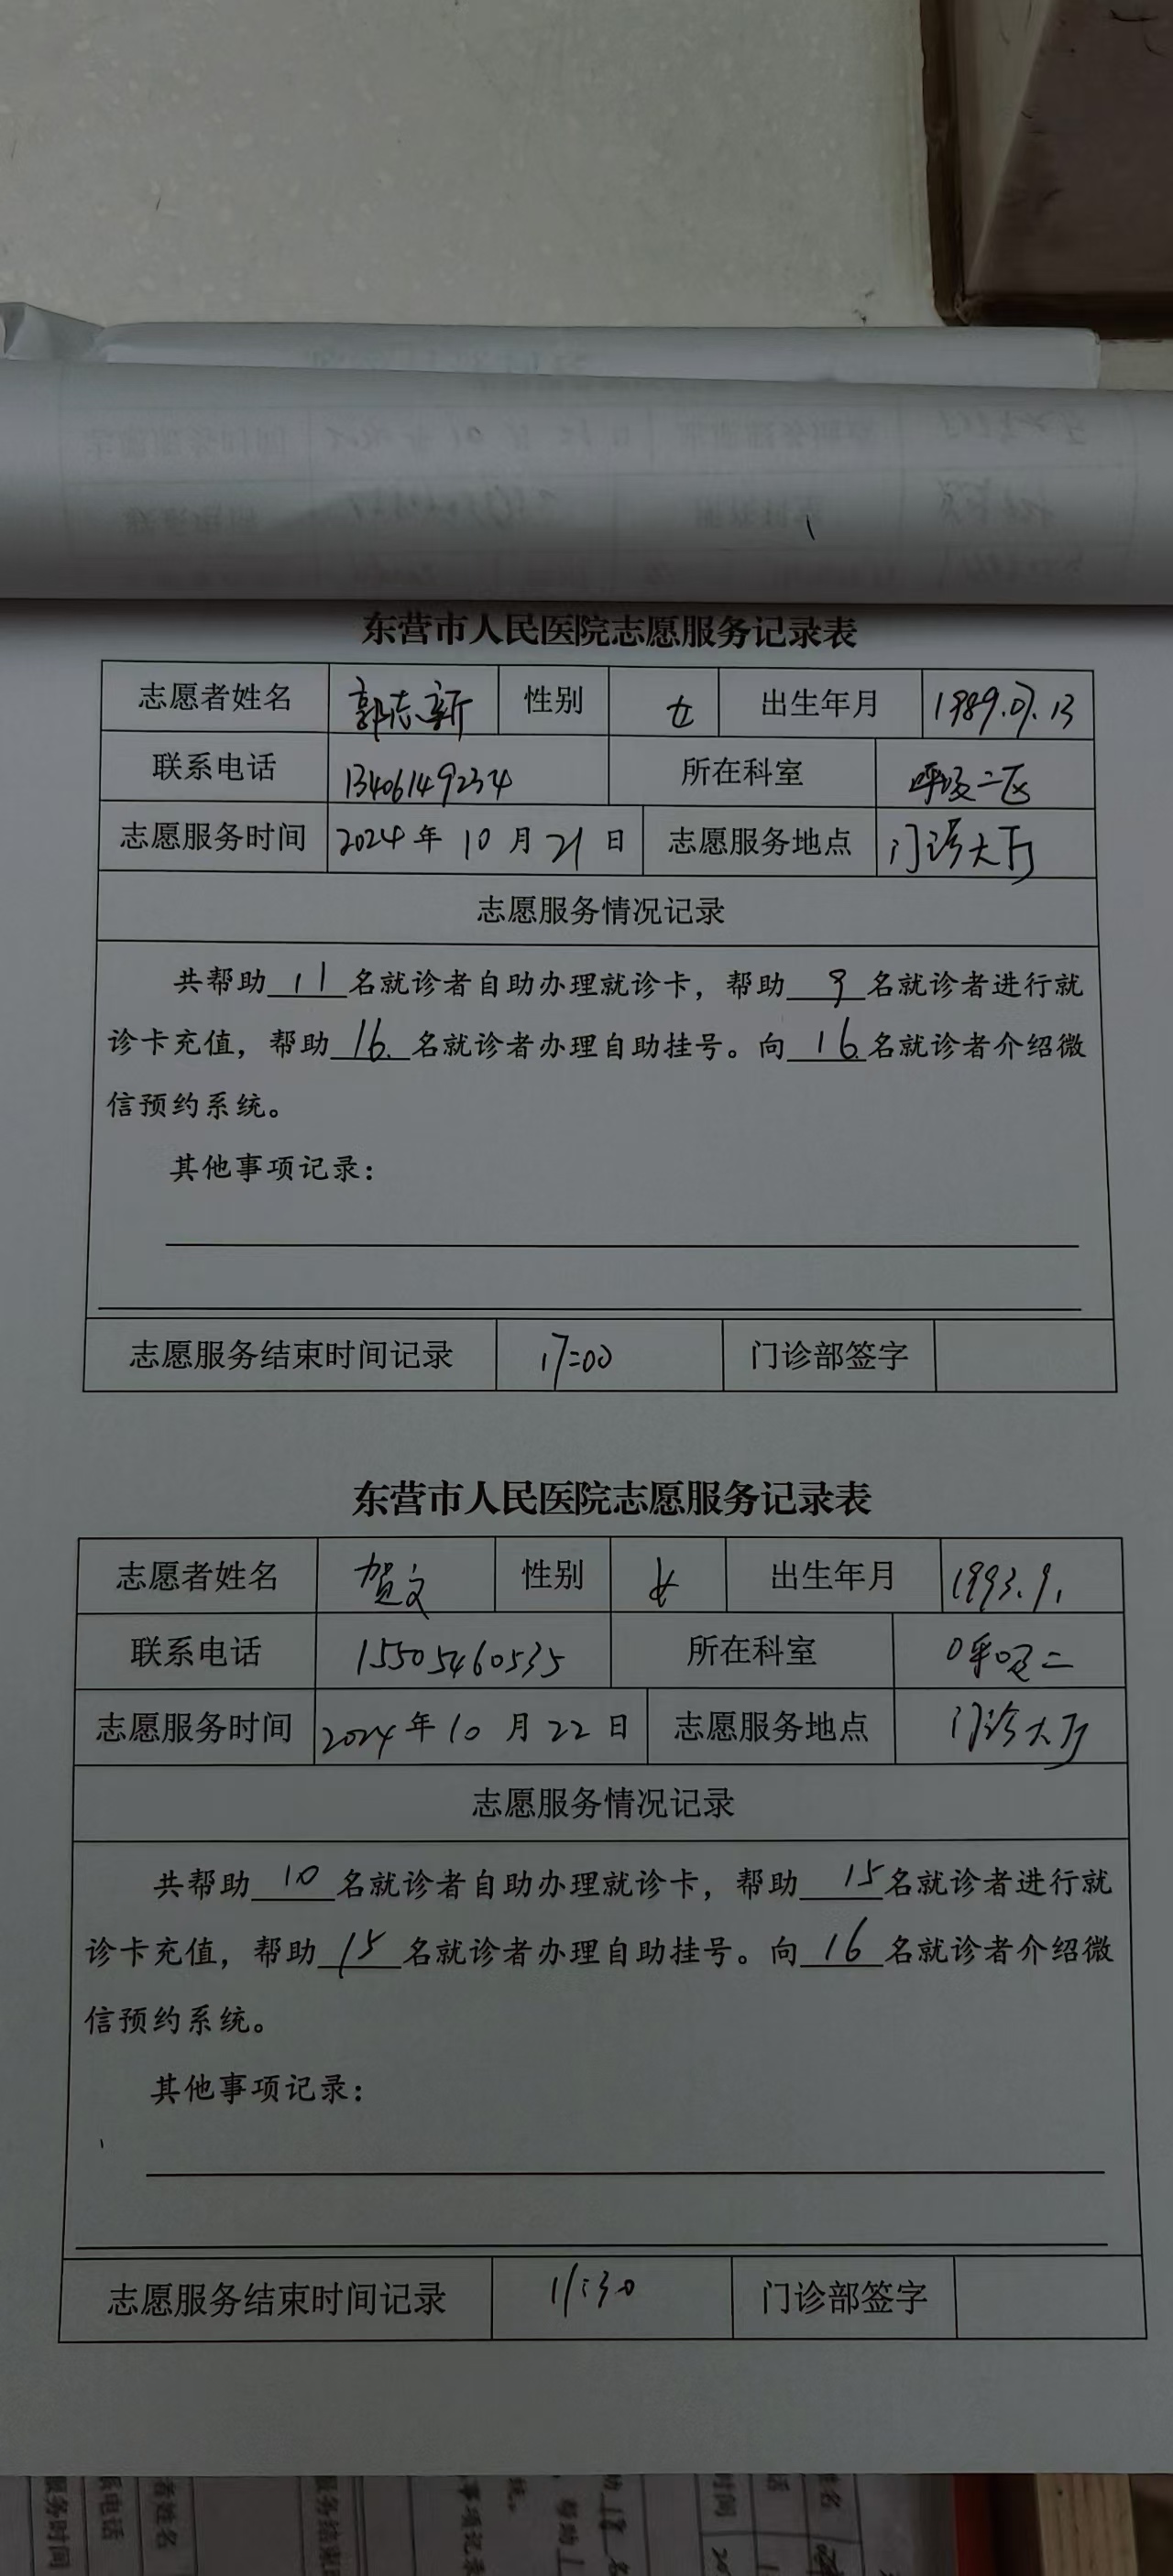 东营市人民医院志愿服务记录表
志愿者姓名 郭志新 性别 女 出生年月 1989.07.13
联系电话 13406149234 所在科室 呼吸二区
志愿服务时间 2024年10月21日 志愿服务地点 门诊大厅
志愿服务情况记录
共帮助11名就诊者自助办理就诊卡，帮助9名就诊者进行就
诊卡充值，帮助16.名就诊者办理自助挂号。向16.名就诊者介绍微
信预约系统。
其他事项记录：
志愿服务结束时间记录 17:00 门诊部签字
东营市人民医院志愿服务记录表
志愿者姓名 贺文 性别 女 出生年月 1993.9.
联系电话 15505460535 所在科室 呼吸二
志愿服务时间 2024年10月22日 志愿服务地点 门诊大厅
志愿服务情况记录
共帮助10名就诊者自助办理就诊卡，帮助15名就诊者进行就
诊卡充值，帮助15名就诊者办理自助挂号。向16名就诊者介绍微
信预约系统。
其他事项记录：
志愿服务结束时间记录 11:30 门诊部签字